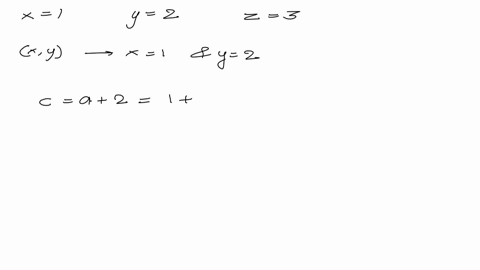 x = 1 y = 2 z = 3
(x, y) → x = 1 & y = 2
c = a + 2 = 1 +